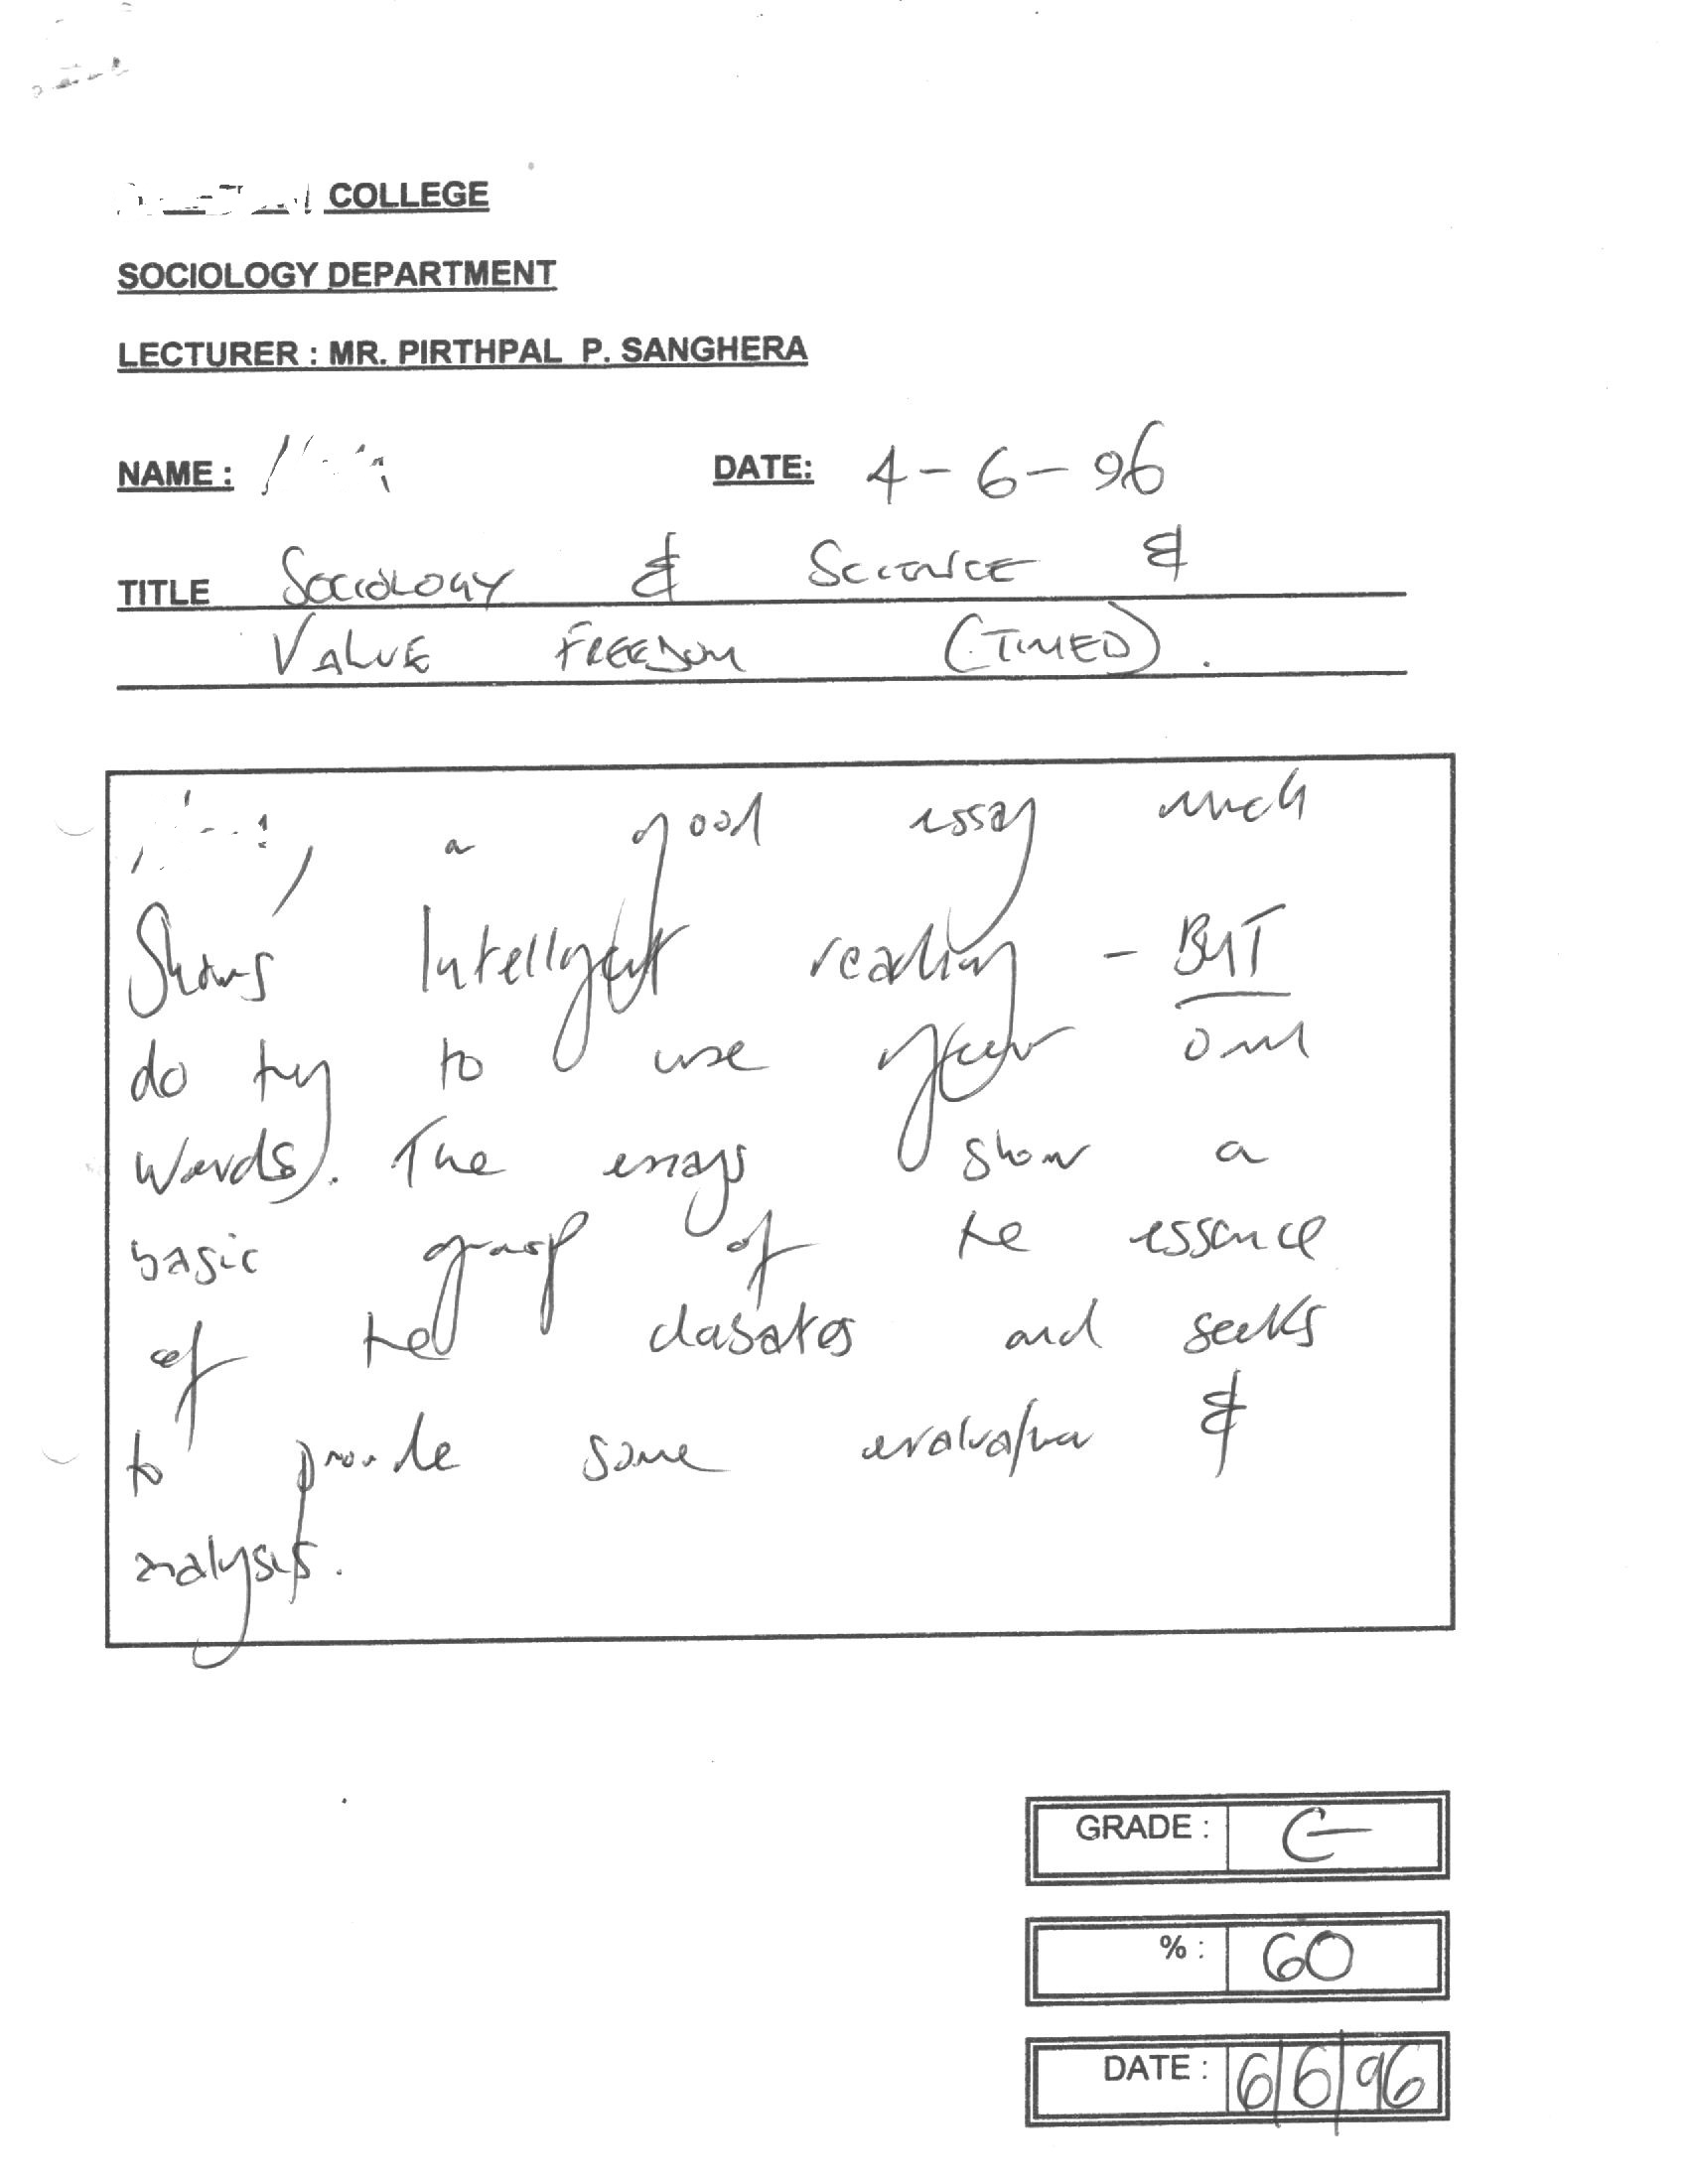 COLLEGE
SOCIOLOGY DEPARTMENT
LECTURER : MR. PIRTHPAL P. SANGHERA
NAME : DATE: 4-6-96
TITLE SOCIOLOGY & SCIENCE &
VALUE FREEDOM (TIMED).
a good essay which
Shows Intelligent reading - BUT
do try to use your own
words). The essays show a
basic grasp of the essence
of the debates and seeks
to provide some evaluation &
analysis.
GRADE : C-
% : 60
DATE : 6/6/96